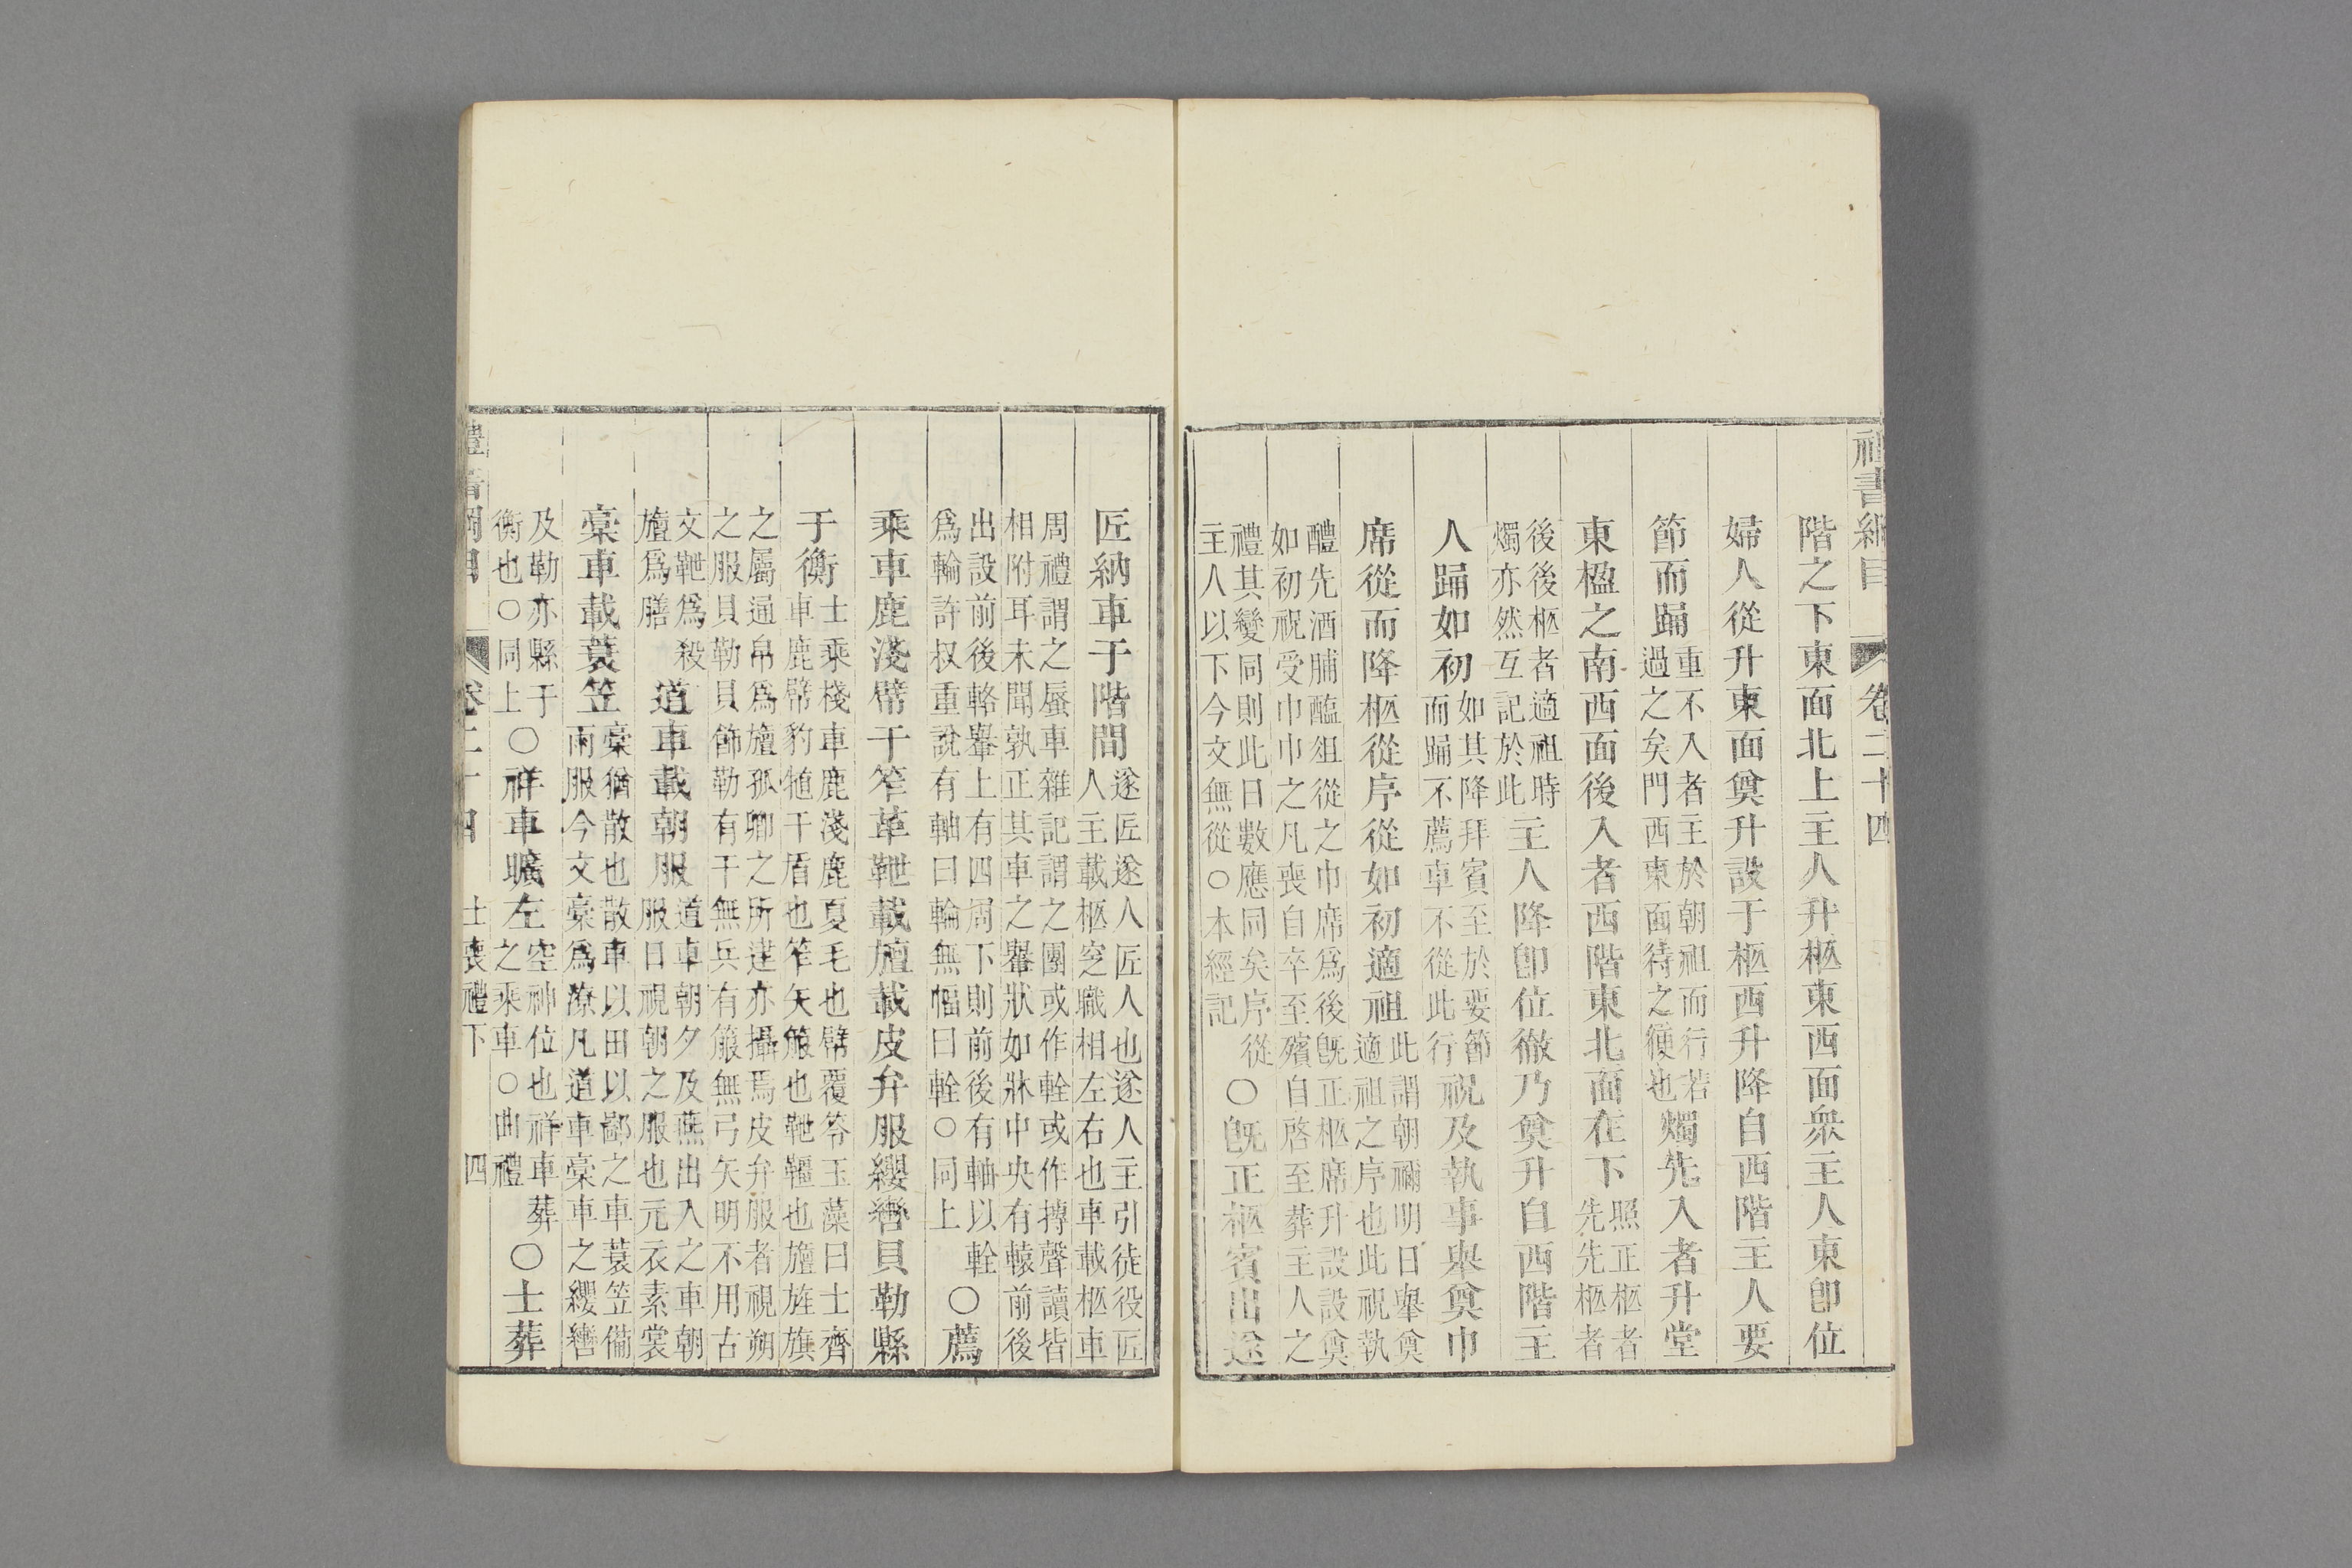 禮書綱目　卷二十四
階之下東面北上主人升柩東西面衆主人東卽位
婦人從升東面奠升設于柩西升降自西階主人要
節而踊重不入者主於朝祖而行若過之矣門西東面待之便也燭先入者升堂
東楹之南西面後入者西階東北面在下照正柩者先先柩者
後後柩者適祖時燭亦然互記於此主人降卽位徹乃奠升自西階主
人踊如初如其降拜賓至於要節而踊不薦車不從此行祝及執事舉奠巾
席從而降柩從序從如初適祖此謂朝禰明日舉奠適祖之序也此祝執
醴先酒脯醢俎從之巾席爲後旣正柩席升設設奠如初祝受巾巾之凡喪自卒至殯自啓至葬主人之
禮其變同則此日數應同矣序從主人以下今文無從○本經記○旣正柩賓出遂
匠納車于階間遂匠遂人匠人也遂人主引徒役匠人主載柩窆職相左右也車載柩車
周禮謂之蜃車雜記謂之團或作輇或作摶聲讀皆相附耳未聞孰正其車之轝狀如牀中央有轅前後
出設前後輅轝上有四周下則前後有軸以輇爲輪許叔重說有軸曰輪無輻曰輇○同上○薦
乘車鹿淺幦干笮革靾載旜載皮弁服纓轡貝勒縣
于衡士乘棧車鹿淺鹿夏毛也幦覆笭玉藻曰士齊車鹿幦豹犆干盾也笮矢箙也靾韁也旜旌旗
之屬通帛爲旜孤卿之所建亦攝焉皮弁服者視朔之服貝勒貝飾勒有干無兵有箙無弓矢明不用古
文靾爲殺旜爲膳道車載朝服道車朝夕及燕出入之車朝服日視朝之服也元衣素裳
槀車載蓑笠槀猶散也散車以田以鄙之車蓑笠備雨服今文槀爲潦凡道車槀車之纓轡
及勒亦縣于衡也○同上○祥車曠左空神位也祥車葬之乘車○曲禮○士葬
禮書綱目　卷二十四　士喪禮下　四